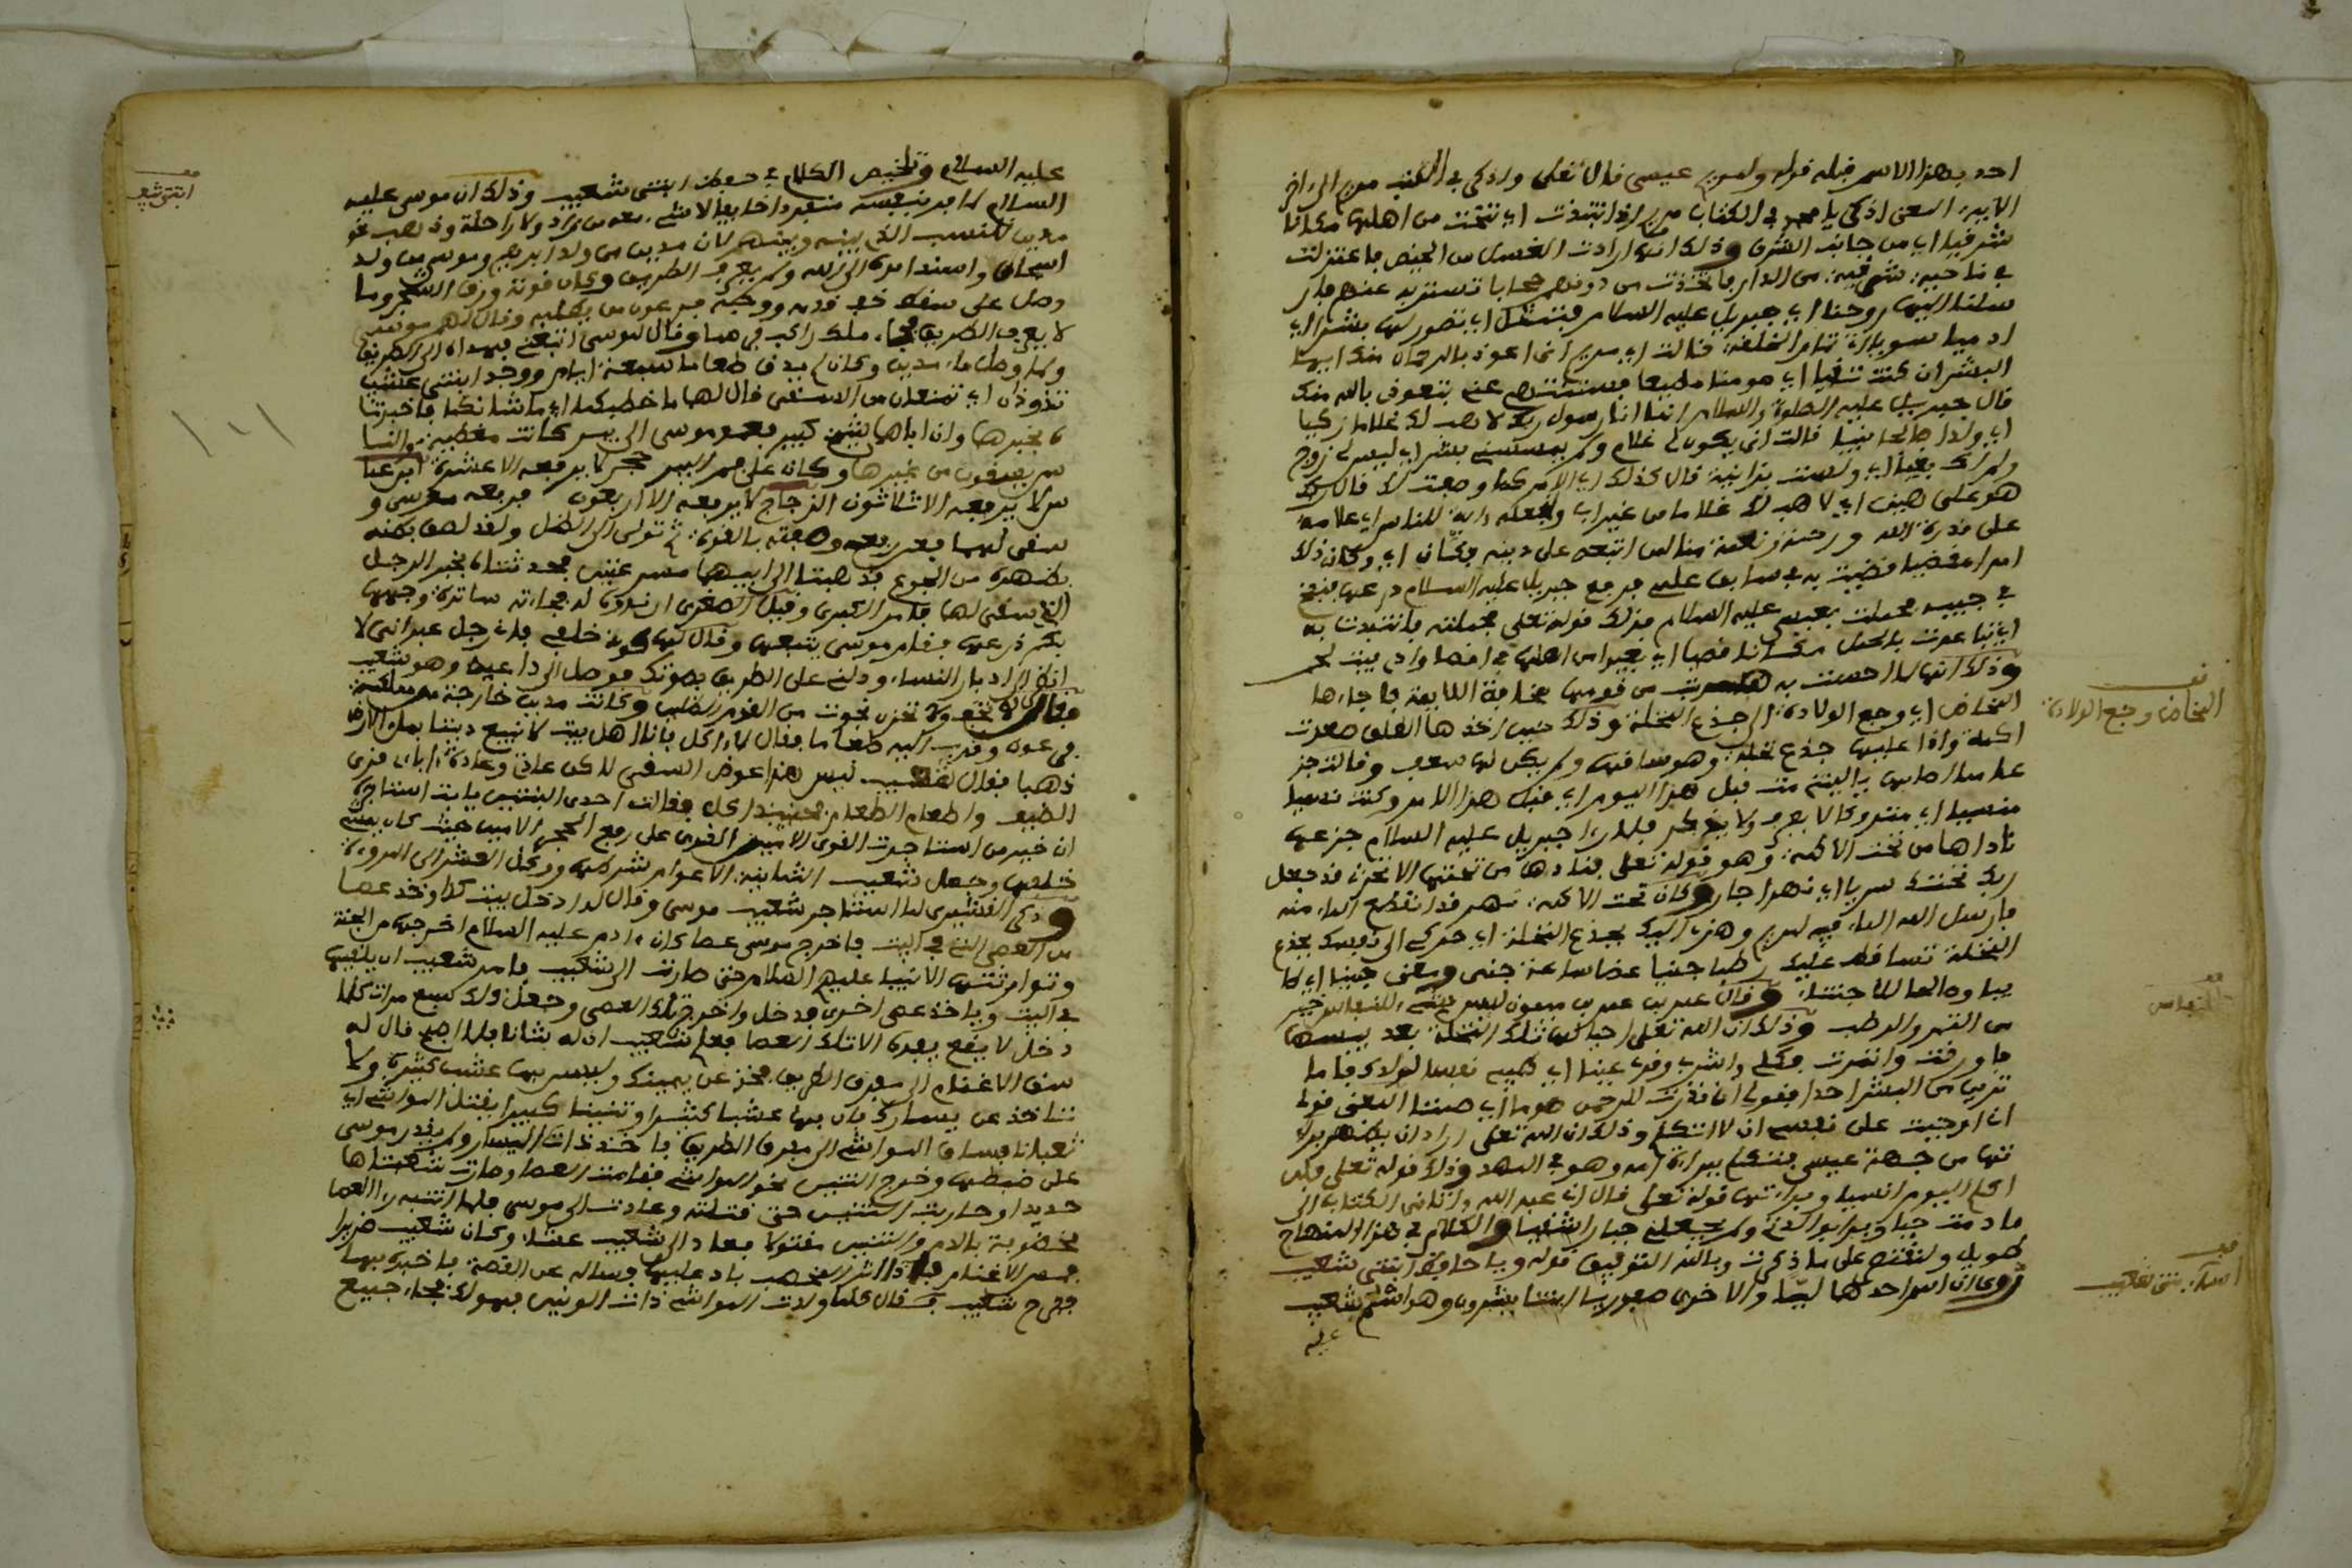 احد بهذا الاسم قبله قوله ولمريم عيسى قال تعلى واذكر في الكتب مريم الى اخر
الايه، المعنى اذكر يا محمد في الكتاب مريم اذ انتبذت اي تنحت من اهلها مكانا
شرقيا اي من جانب الشرق وذلك انها ارادت الغسل من الحيض فاعتزلت
في ناحية شرقية من الدار فاتخذت من دونهم حجابا تستتر به عنهم فار
سلنا اليها روحنا اي جبريل عليه السلام فتمثل اي تصور لها بشرا اي
ادميا سويا تام الخلقة فقالت اي مريم اني اعوذ بالرحمان منك ايها
البشر ان كنت تقيا اي مومنا مطيعا فستنتهي عني بتعوذي بالله منك
قال جبريل عليه الصلوة والسلام انما انا رسول ربك لاهب لك غلاما زكيا
اي ولدا صالحا نبيا قالت انى يكون لي غلام ولم يمسسني بشر اي ليس لي زوج
ولم اك بغيا اي ولست بزانية قال كذلك اي الامر كما وصفت لك قال ربك
هو علي هين اي لاهب لك غلاما من غير اب ولنجعله ءاية للناس اي علامة
على قدرة الله ورحمة ونعمة منا لمن اتبعه على دينه وكان اي وكان ذلك
امرا مقضيا قضيت به في سابق علمي فرفع جبريل عليه السلام درعها فنفخ
في جيبه فحملت بعيسى عليه السلام فذلك قوله تعلى فحملته فانتبذت به
اي تباعدت بالحمل مكانا قصيا اي بعيدا من اهلها في اقصا وادي بيت لحم
وذلك انها لما احست به هربت من قومها مخافة اللايمة فاجاءها
المخاض اي وجع الولادة الى جذع النخلة وذلك حين اخذها الطلق صعدت
اكمة واذا عليها جذع نخلة وهو ساقها ولم يكن لها سعف وقالت جز
عا مما اصابها يا ليتني مت قبل هذا اليوم اي قبل هذا الامر وكنت نسيا
منسيا اي متروكا لا يعرف ولا يذكر فلما راى جبريل عليه السلام جزعها
ناداها من تحت الاكمة وهو قوله تعلى فنادها من تحتها الا تحزن قد جعل
ربك تحتك سريا اي نهرا جار وكان تحت الاكمة نهر قد انقطع الماء منه
فارسل الله الماء فيه لمريم وهزي اليك بجذع النخلة اي حركي الى نفسك بجذع
النخلة تساقط عليك رطبا جنيا غضا ساعة جني ومعنى جنيا اي
صالحا للاجتناء وقال عمرو بن ميمون ليس شيء للنفساء خير
من التمر والرطب وذلك ان الله تعلى احيا لها تلك النخلة بعد يبسها
فاورقت واثمرت فكلي واشربي وقري عينا اي طيبي نفسا لولدك فاما
ترين من البشر احدا فقولي اني نذرت للرحمن صوما اي صمتا المعنى قولي
اني اوجبت على نفسي ان لا اتكلم وذلك ان الله تعلى اراد ان يظهر براء
تها من جهة عيسى فتكلم ببراءة امه وهو في المهد وذلك قوله تعلى فلن
اكلم اليوم انسيا وبراءتها قوله تعلى قال اني عبد الله ءاتاني الكتاب الى
ما دمت حيا وبرا بوالدتي ولم يجعلني جبارا شقيا والكلام في هذا المنهاج
طويل ولنقتصر على ما ذكرت وبالله التوفيق قوله ويا حافظ ابنتي شعيب
روي ان اسم احدهما ليا والاخرى صفوريا ابنتا يثرون وهو اسم شعيب
عليه
المخاض وجع الولادة
النفاس
اسماء بنتي شعيب
عليه السلام وتلخيص الكلام في حفظ ابنتي شعيب وذلك ان موسى عليه
السلام لما فر بنفسه منفردا خايفا لا شيء معه من زاد ولا راحلة وذهب نحو
مدين للنسب الذي بينه وبينهم لان مدين من ولد ابرهيم وموسى من ولد
اسحاق واسند امره الى الله ولم يعرف الطريق وكان قوته ورق الشجر وما
وصل على سقط خف قدمه ووجه فرعون من يطلبه وقال لهم موسى
لا يعرف الطريق فجاء ملك راكب فرسا وقال لموسى اتبعني فهداه الى الطريق
ولما وصل ماء مدين وكان لم يذق طعاما سبعة ايام ووجد ابنتي شعيب
تذودان اي تمنعان من الاستقى قال لهما ما خطبكما اي ما شانكما فاخبرتا
ه بخبرهما وان اباهما شيخ كبير فعمد موسى الى بير كانت مغطية والنا
س يسقون من غيرها وكان على فم البير حجر لا يرفعه الا عشرة ابن عبا
س لا يرفعه الا ثلاثون الزجاج لا يرفعه الا اربعون فرفعه موسى و
سقى لهما فعرفته وصفته بالقوة ثم تولى الى الظل ولقد لصق بطنه
بظهره من الجوع فذهبتا الى ابيهما مسرعتين فحدثتاه بخبر الرجل
الذي سقى لهما فامر الكبرى وقيل الصغرى ان تدعوه له فجاءته ساترة وجهها
بكم درعها فقام موسى يتبعها وقال لها كوني خلفي فاني رجل عبراني لا
انظر الى ادبار النساء ودليني على الطريق بصوتك فوصل الى داعيه وهو شعيب
فقال لا تخف ولا تحزن نجوت من القوم الظلمين وكانت مدين خارجة من مملكة
فرعون وقرب اليه طعاما فقال لا اكل فانا اهل بيت لا نبيع ديننا بملء الارض
ذهبا فقال شعيب ليس هذا عوض السقي لكن عادتي وعادة اباءي قرى
الضيف واطعام الطعام فحينئذ اكل فقالت احدى البنتين يا ابت استاجره
ان خير من استاجرت القوي الامين القوي على رفع الحجر الامين حيث كان يمشي
خلفها وجعل شعيب الثمانية الاعوام شرطه ووكل العشر الى المروءة
وذكر القشيري لما استاجر شعيب موسى وقال له ادخل بيت كذا وخذ عصا
من العصي التي في البيت فاخرج موسى عصا كان ءادم عليه السلام اخرجها من الجنة
وتوارثتها الانبيا عليهم السلام حتى صارت الى شعيب فامر شعيب ان يلقيها
في البيت وياخذ عصى اخرى فدخل واخرج تلك العصى وجعل ذلك سبع مرات كلما
دخل لا يقع بيده الا تلك العصا فعلم شعيب ان له شانا فلما اصبح قال له
سق الاغنام الى مفرق الطريق فخذ عن يمينك وليس بها عشب كثيرة ولا
تاخذ عن يسارك فان بها عشبا كثيرا وتنينا كبيرا يقتل المواشي اي
ثعبانا فساق المواشي الى مفرق الطريق فاخذت ذات اليسار ولم يقدر موسى
على ضبطها وخرج التنين نحو المواشي فقامت العصا وصارت شعبتاها
حديدا وحاربت التنين حتى قتلته وعادت الى موسى فلما انتبه راى العصا
مخضوبة بالدم والتنين مقتولا فعاد الى شعيب عشاء وكان شعيب ضريرا
فمس الاغنام فاذا اثر الخصب باد عليها فساله عن القصة فاخبره بها
ففرح شعيب فقال كلما ولدت المواشي ذات الونين فهو لك فجاء جميع
ابنتي شعيب